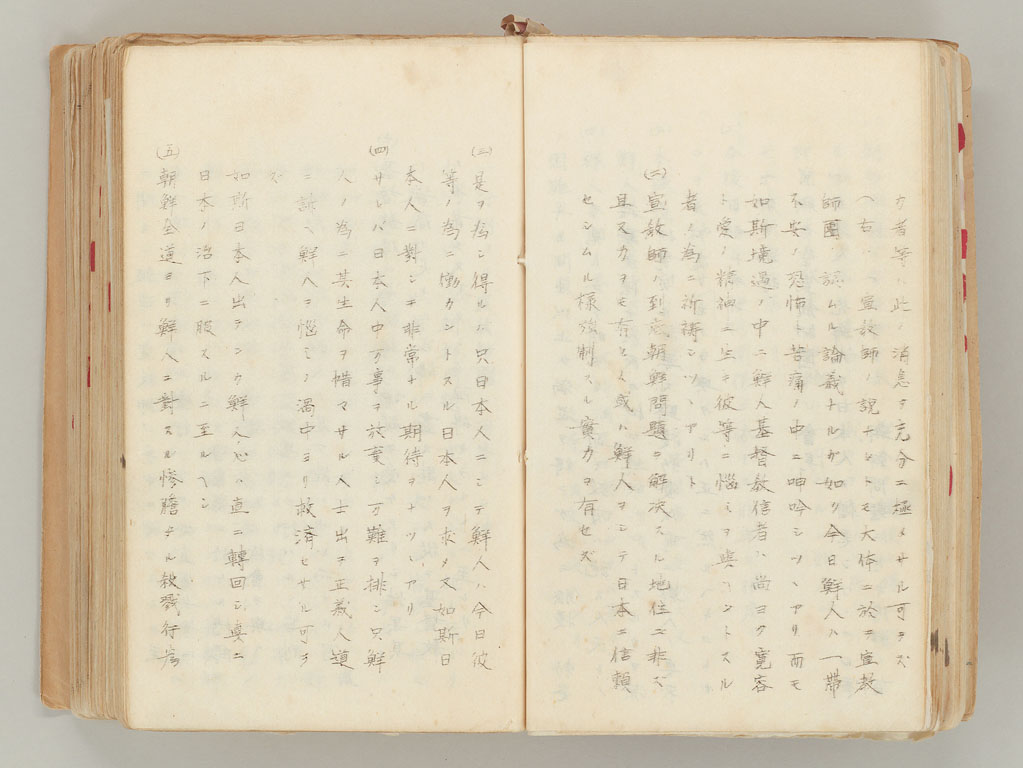 カ者等ハ此ノ消息ヲ充分ニ極メサル可ラズ
ヘ右ハ一宣教師ノ説ナレトモ大体ニ於テ宣教
師團ノ認ムル論義ナルカ如ク今日鮮人ハ一帶
不安ノ恐怖ト苦痛ノ中ニ呻吟シツヽアリ而モ
如斯境過ノ中ニ鮮人基督教信者ハ尚ヨク寛容
ト愛ノ精神ニ生キ彼等ニ惱ミヲ與ヘントスル
者ノ為ニ祈祷シツヽアリト
(二)宣教師ハ到底朝鮮問題ヲ解决スル地位ニ非ズ
且ヌカヲモ有セス或ハ鮮人ヲシテ日本ニ信頼
センムル様強制スル實力ヲ有セズ
(三)是ヲ為シ得ルハ只日本人ニシテ鮮人ハ今日彼
等ノ為ニ働カントスル日本人ヲ求メ又如斯日
本人ニ對シテ非常ナル期待ヲナツヽアリ
(四)サレバ日本人中万事ヲ放棄シ万難ヲ排シ只鮮
人ノ為ニ其生命ヲ惜マサル人士出テ正義人道
ニ訴ヘ鮮人ヲ惱ミノ渦中ヨリ救済セサル可ラ
ズ
如斯日本人出テンカ鮮人心ハ直ニ轉回シ真ニ
日本ノ治下ニ服スルニ至ルヘシ
(五)朝鮮全道ヨリ鮮人ニ對スル慘膽ナル殺戮行為